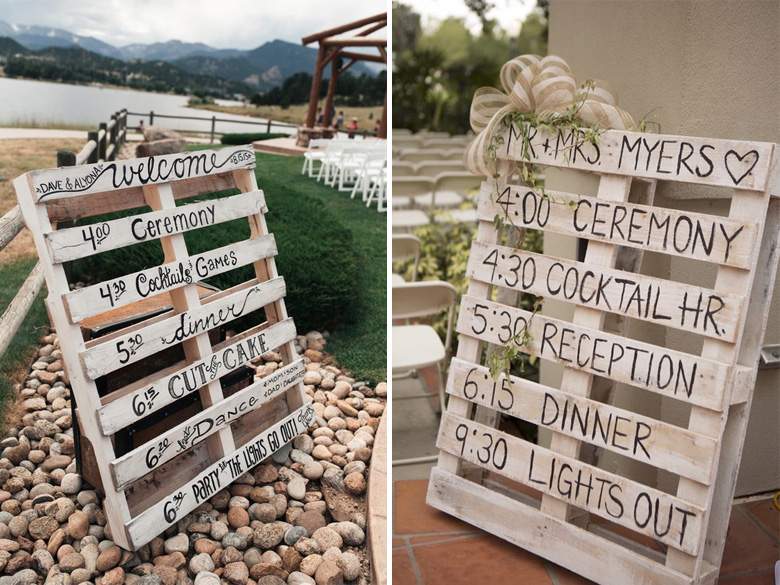 DAVE & ALYSA welcome
4:00 CEREMONY
4:30 COCKTAILS & GAMES
5:30 dinner
6:15 CUT the CAKE
6:20 DANCE MOM & SON DAD &
6:30 PARTY 'till THE LIGHTS GO OUT!
MR + MRS MYERS ♡
8/15/15
4:00 CEREMONY
4:30 COCKTAIL HR.
5:30 RECEPTION
6:15 DINNER
9:30 LIGHTS OUT